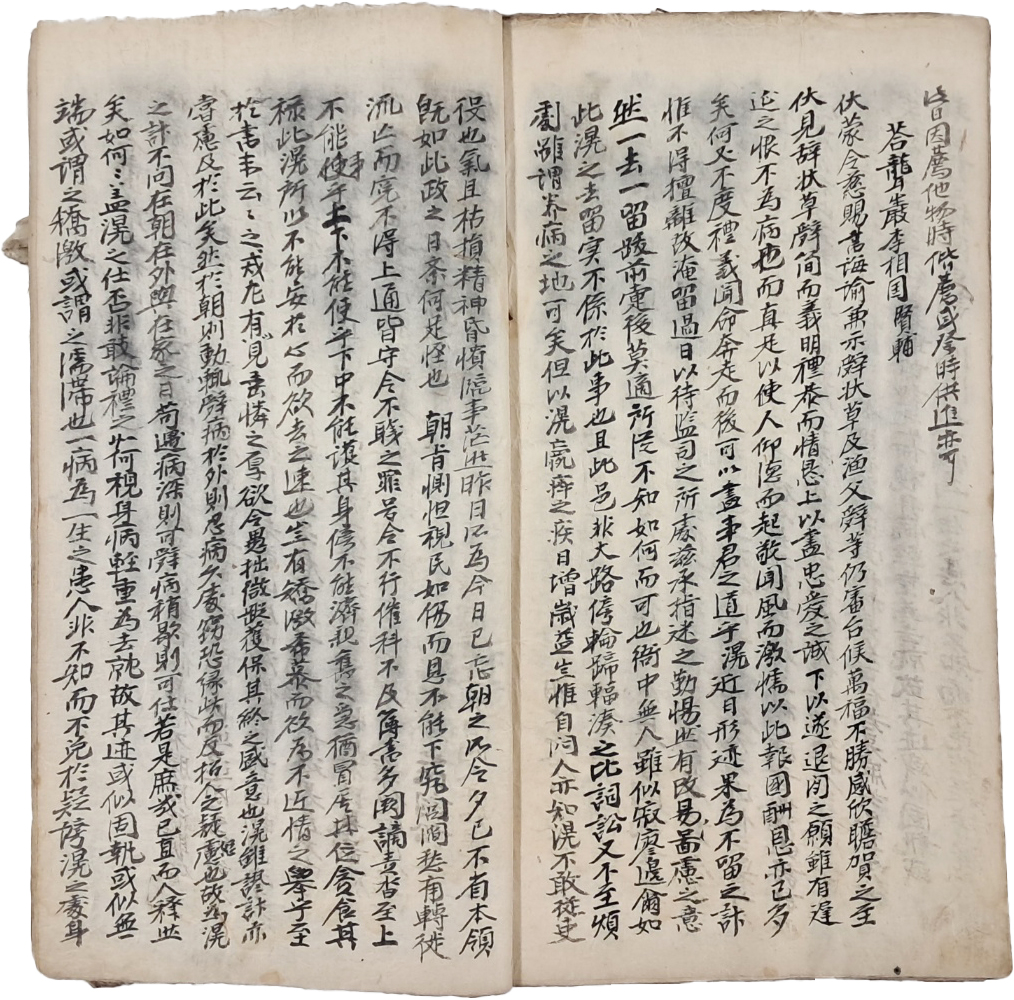 皆因薦他物時偕薦或祭時供進乎
荅聾巖李相国賢輔
伏蒙令慈賜書誨諭兼示辞状草及漁父辞等仍審台候萬福不勝感欣瞻賀之至
伏見辞状草辞簡而義明禮恭而情恳上以盡忠愛之誠下以遂退閑之願雖有遅
近之恨不為病也而真足以使人仰徳而起敬聞風而激懦以此報國酬恩亦已多
矣何又不度禮義聞命奔走而後可以盡事君之道乎滉近日形迹果為不留之計
惟不得擅離故淹留過日以待監司之所處兹承指迷之勤惕然有改易啚慮之意
然一去一留跋前疐後莫適所從不知如何而可也衙中無人雖似寂寥邊爾如
此滉之去留実不係於此事也且此邑非大路停輪歸輻湊之比詞訟又不至煩
劇雖謂养病之地可矣但以滉羸瘁之疾日增歳益生惟自问人亦知滉不敢徒吏
役也氣且枯損精神昏憒臨事茫然昨日所為今日已忘朝之所令夕已不省本領
既如此政之日紊何足怪也 朝肯惻怛視民如傷而县不能下究凋洞愁痛轉徙
流亡而寃不得上通皆守令不職之罪号令不行催科不及簿書多闕謫责沓至上
不能使事乎上下不能使乎下中不能護其身信不能濟親舊之急猶冒居其位食其
禄此滉所以不能安於心而欲去之速也岂有矯激希慕而欲为不近情之舉乎至
於書末云々之戒尤有見垂憐之厚欲令愚拙微敗獲保其終之盛意也滉雖謬計亦
嘗慮及於此矣然於朝則動輒辞病於外則忍病久處窃恐縁此而反招人之疑慮也故為滉
之計不问在朝在外與在家之日苟遇病深則可辞病稍歇則可仕若是庶或已且而人釋然
矣如何々盖滉之仕否非敢論禮之苛視身病輕重為去就故其迹或似固執或似無
端或謂之矯激或謂之濡滞也一病為一生之患人非不知而不免於疑謗滉之處身